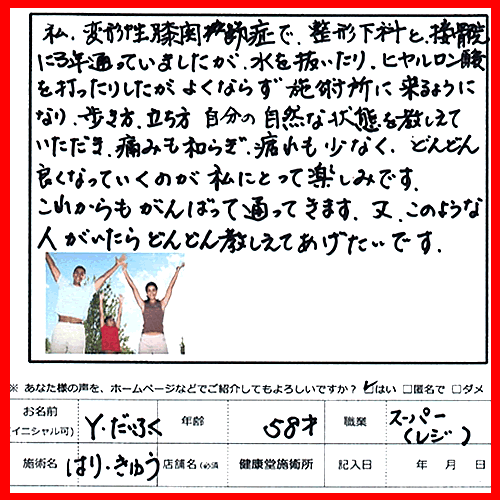 私、変形性膝関節症で、整形下科と、接骨院
に3年通っていましたが、水を抜いたり、ヒヤルロン酸
を打ったりしたがよくならず施術所に来るように
なり、歩き方、立ち方 自分の自然な状態を教しえて
いただき、痛みも和らぎ、疲れも少なく、どんどん
良くなっていくのが私にとって楽しみです。
これからもがんばって通ってきます。又、このような
人がいたらどんどん教しえてあげたいです。
※ あなた様の声を、ホームページなどでご紹介してもよろしいですか？ ☑はい □匿名で □ダメ
お名前 Y・だいふく 年齢 58才 職業 スーパー
イニシャル可) (レジ)
施術名 はり・きゅう 店舗名(必須 健康堂施術所 記入日 年 月 日